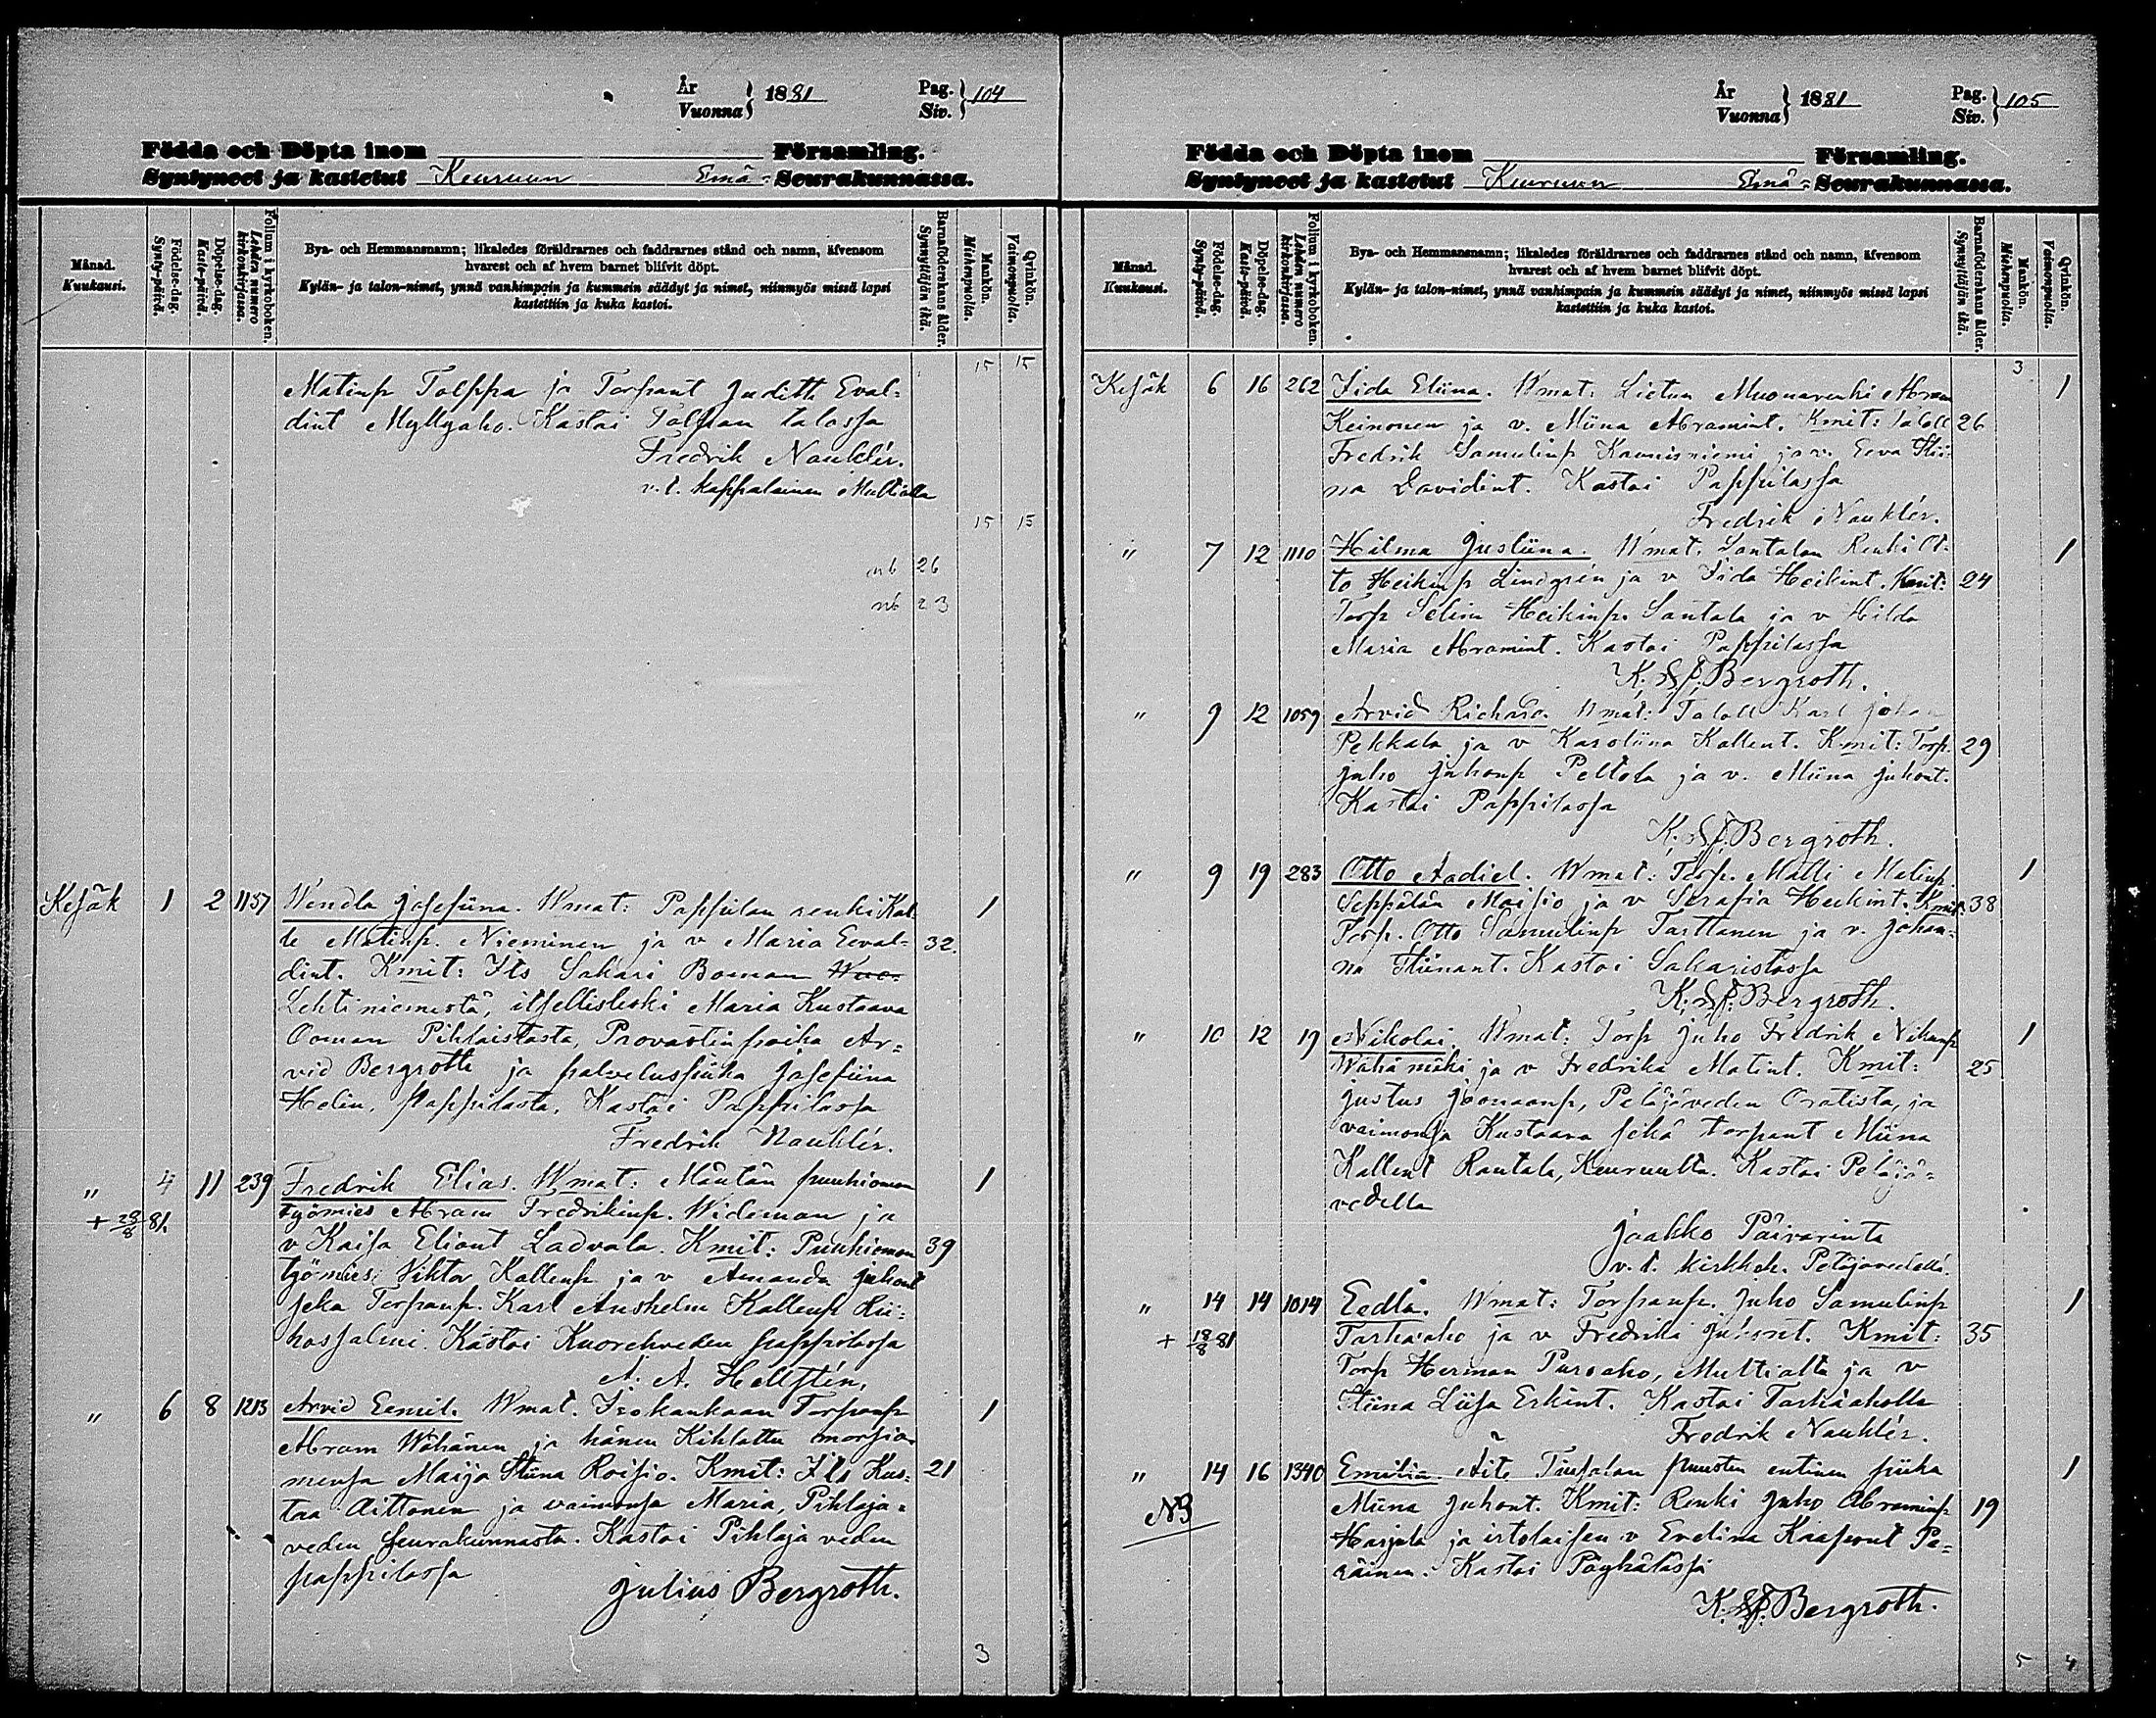 År
Vuonna } 1881
Pag.
Siv. } 104
Födda och Döpta inom Församling.
Syntyneet ja kastetut Keuruun Emä- Seurakunnassa.
Månad.
Kuukausi.
Födelse-dag.
Synty-päivä.
Döpelse-dag.
Kaste-päivä.
Folium i kyrkoboken.
Lehden numero kirkonkirjassa.
Bya- och Hemmansnamn; likaledes föräldrarnes och faddrarnes stånd och namn, äfvensom
hvarest och af hvem barnet blifvit döpt.
Kylän- ja talon-nimet, ynnä vanhimpain ja kummein säädyt ja nimet, niinmyös missä lapsi
kastettiin ja kuka kastoi.
Barnaföderskans ålder.
Synnyttäjän ikä.
Mankön.
Miehenpuolia.
Qvinkön.
Vaimonpuolia.
15 15
Matinp Tolppa ja Torpant Judith Eval=
dint Myllyaho. Kastoi Tolpan talossa
Fredrik Nauklér.
v.t. kappalainen Multialla
15 15
26
23
Kesäk 1 2 1157 Wendla Josefiina. Wmat: Pappilan renki Kal= 1
le Matinp. Nieminen ja v Maria Eeval= 32.
dint. Kmit: Its Sakari Boman
Lehtiniemestä, itsellisleski Maria Kustaava
Ooman Pihlaistosta, Provastinpoika Ar=
vid Bergroth ja palveluspiika Josefiina
Helin, Pappilasta. Kastoi Pappilassa
Fredrik Nauklér.
" 4 11 239 Fredrik Elias. Wmat: Mäntän puuhiomon 1
+ 28/8 81. työmies Abram Fredrikinp. Wideman ja
v Kaisa Eliant Ladvala. Kmit: Puuhiomon 39
työmies Viktor Kallenp ja v Amanda Juhont
sekä Torpanp. Karl Anshelm Kallenp Rii=
hossalmi. Kastoi Kuoreveden pappilassa
A. A. Hellstén.
" 6 8 1213 Arvid Eemil. Wmat. Isokankaan Torpanp 1
Abram Wähänen ja hänen Kihlattu morsia=
mensa Maija Stiina Roisio. Kmit: Its Kus= 21
taa Aittonen ja vaimonsa Maria, Pihlaja=
veden seurakunnasta. Kastoi Pihlajaveden
pappilassa
Julius Bergroth.
3
År
Vuonna } 1881
Pag.
Siv. } 105
Födda och Döpta inom Församling.
Syntyneet ja kastetut Keuruun Emä= Seurakunnassa.
Månad.
Kuukausi.
Födelse-dag.
Synty-päivä.
Döpelse-dag.
Kaste-päivä.
Folium i kyrkoboken.
Lehden numero kirkonkirjassa.
Bya- och Hemmansnamn; likaledes föräldrarnes och faddrarnes stånd och namn, äfvensom
hvarest och af hvem barnet blifvit döpt.
Kylän- ja talon-nimet, ynnä vanhimpain ja kummein säädyt ja nimet, niinmyös missä lapsi
kastettiin ja kuka kastoi.
Barnaföderskans ålder.
Synnyttäjän ikä.
Mankön.
Miehenpuolia.
Qvinkön.
Vaimonpuolia.
3
Kesäk 6 16 262 Iida Eliina. Wmat: Lietun Muonarenki Abram 1
Keinonen ja v. Miina Abramint. Kmit: Taloll 26
Fredrik Samulinp Kaunisniemi ja v. Eeva Stii=
na Davidint. Kastoi Pappilassa
Fredrik Nauklér.
" 7 12 1110 Hilma Justiina. Wmat. Santalan Renki Ot= 1
to Heikinp Lindgrén ja v Iida Heikint. Kmit: 24
Torp Selim Heikinp. Santala ja v Hilda
Maria Abramint. Kastoi Pappilassa
K. Bergroth.
" 9 12 1059 Arvid Richard. Wmat: Taloll Karl Johan
Pekkala ja v Karoliina Kallent. Kmit: Torp. 29
Juho Juhonp Peltola ja v. Miina Juhont.
Kastoi Pappilassa
K. Bergroth.
" 9 19 283 Otto Aadiel. Wmat: Torp. Matti Matinp. 1
Seppälän Moisio ja v Serafia Heikint. Kmit 38
Torp. Otto Samulinp Tarttanen ja v. Johan=
na Stiinant. Kastoi Sakaristossa
K. Bergroth.
" 10 12 19 Nikolai. Wmat: Torp Juho Fredrik Nikunp 1
Wähämäki ja v Fredrika Matint. Kmit: 25
Justus Joonaanp, Petäjäveden Oratista, ja
vaimonsa Kustaava sekä torpant Miina
Kallent Rautala, Keuruulta. Kastoi Petäjä=
vedellä
Jaakko Päivärinta
v.t. kirkkoh. Petäjävedellä.
" 14 14 1014 Eedla. Wmat: Torpanp. Juho Samulinp 1
+ 18/8 81 Tarhaaho ja v Fredrika Juhont. Kmit: 35
Torp Herman Puroaho, Multialta ja v
Stiina Liisa Erkint. Kastoi Tarhaaholla
Fredrik Nauklér.
" 14 16 1340 Emilia. Äite Tiusalan puusten entinen piika 1
NB Miina Juhont. Kmit: Renki Juho Abraminp 19
Harjula ja irtolaisen v Evelina Kaaperint Pa=
räinen. Kastoi Pöyhölässä
K. Bergroth.
5 4